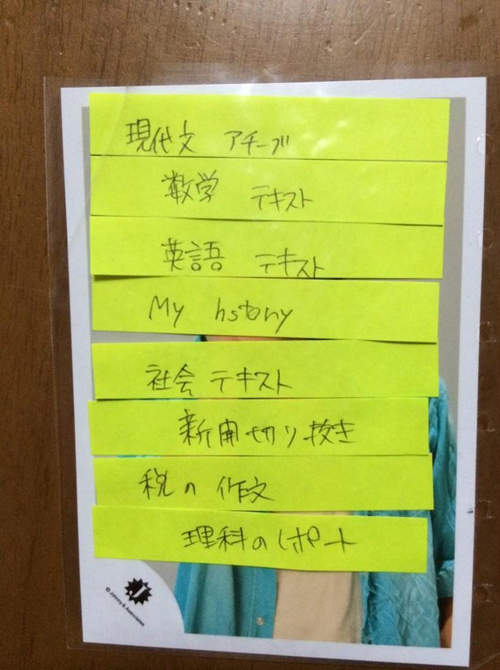 現代文 アチーブ
数学 テキスト
英語 テキスト
My hstory
社会 テキスト
新聞切り抜き
税の作文
理科のレポート
© Johnny & Associates